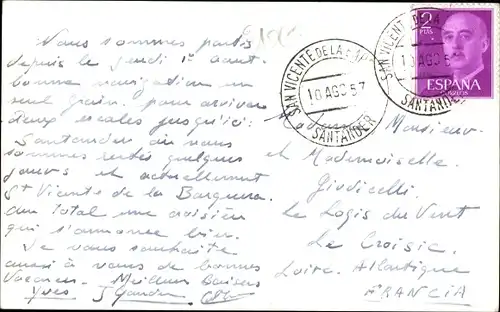 Nous sommes partis
depuis le jeudi 1er aout.
bonne navigation un
seul grain. pour arriver
deux escales jusqu'ici:
Santander où nous
sommes restés quelques
jours et actuellement
St Vicente de la Barquera.
au total une croisière
qui s'annonce bien.
Je vous souhaite
aussi à vous de bonnes
vacances. Meilleurs Baisers
Yves
SAN VICENTE DE LA
10 AGO 57
SANTANDER
SAN VICENTE
10 AGO 57
SANTANDER
2
PTAS
ESPAÑA
CORREOS
Monsieur
et Mademoiselle
Giudicelli
Le Logis du Vent
Le Croisic.
Loire. Atlantique
FRANCIA